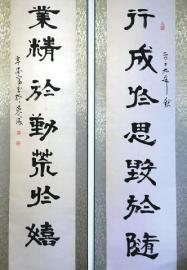 行成於思毀於隨
業精於勤荒於嬉